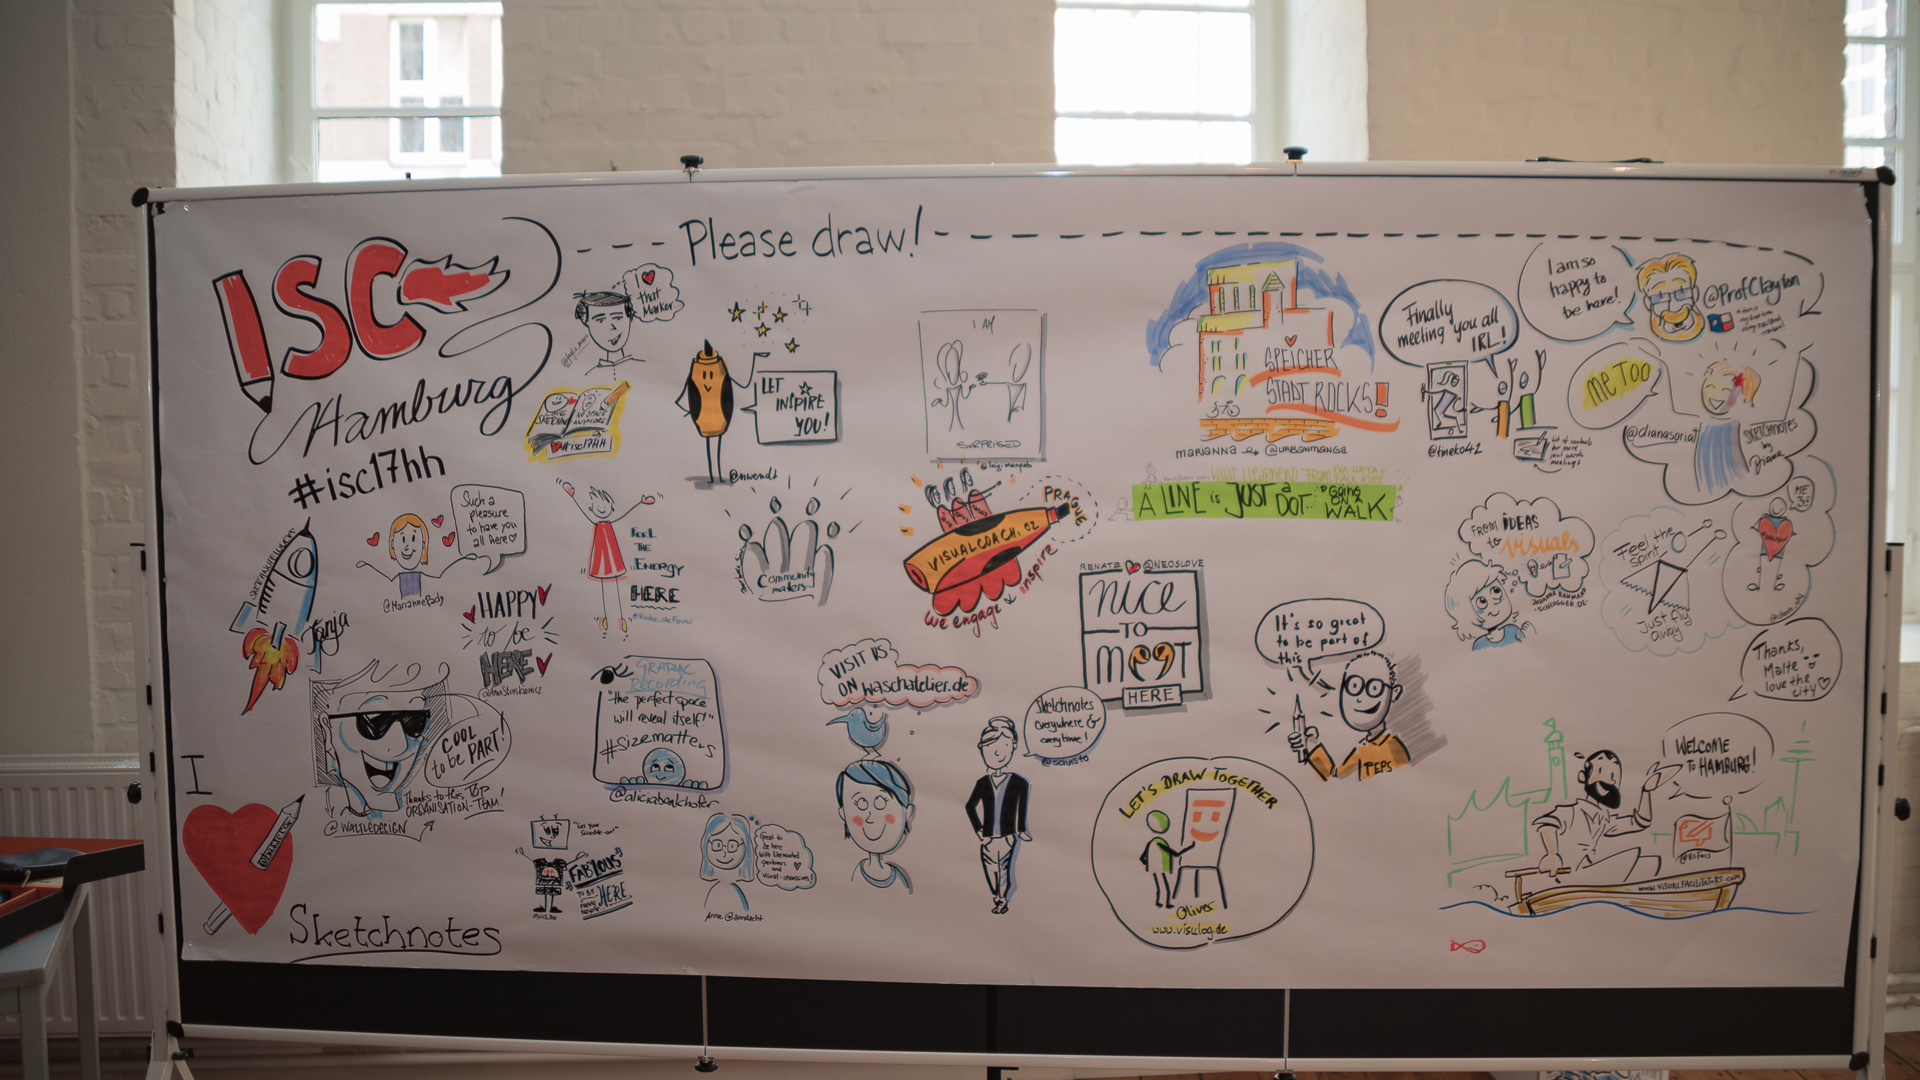 Please draw!
ISC
Hamburg
#isc17hh
I
that
Marker
LET
INSPIRE
YOU!
@nwendt
#isc17HH
I AM
SURPRISED
SPEICHER
STADT ROCKS!
MARIANNA
@URBANMANGA
Finally
meeting you all
IRL!
@tineko42
I am so
happy to
be here!
@ProfClayton
ME TOO
@dianasoriat
SKETCHNOTES
by
Diana
Such a
pleasure
to have you
all here
@MarianneRady
Tanja
HAPPY
to be
HERE
FEEL
THE
ENERGY
HERE
Community
matters
PRAGUE
VISUALCOACH.CZ
we engage & inspire
A LINE is JUST a DOT GOING ON A WALK
RENATE @NEOSLOVE
nice
TO
MEET
HERE
FROM IDEAS
TO visuals
Feel the
spirit
Just fly
away
ME
Thanks,
Malte
love the
city
It's so great
to be part of
this
TEPS
COOL
to be PART!
Thanks to this TOP
ORGANISATION-TEAM!
@WALTLEDESIGN
GRAPHIC
RECORDING
"the perfect space
will reveal itself"
#sizematters
@aliciabankhofer
VISIT US
ON waschatelier.de
Sketchnotes
everywhere &
everytime!
LET'S DRAW TOGETHER
Oliver
www.visulog.de
WELCOME
TO HAMBURG!
www.VISUALFACILITATORS.com
I
Sketchnotes
FABULOUS
TO BE
HERE
Great to
be here
Anne